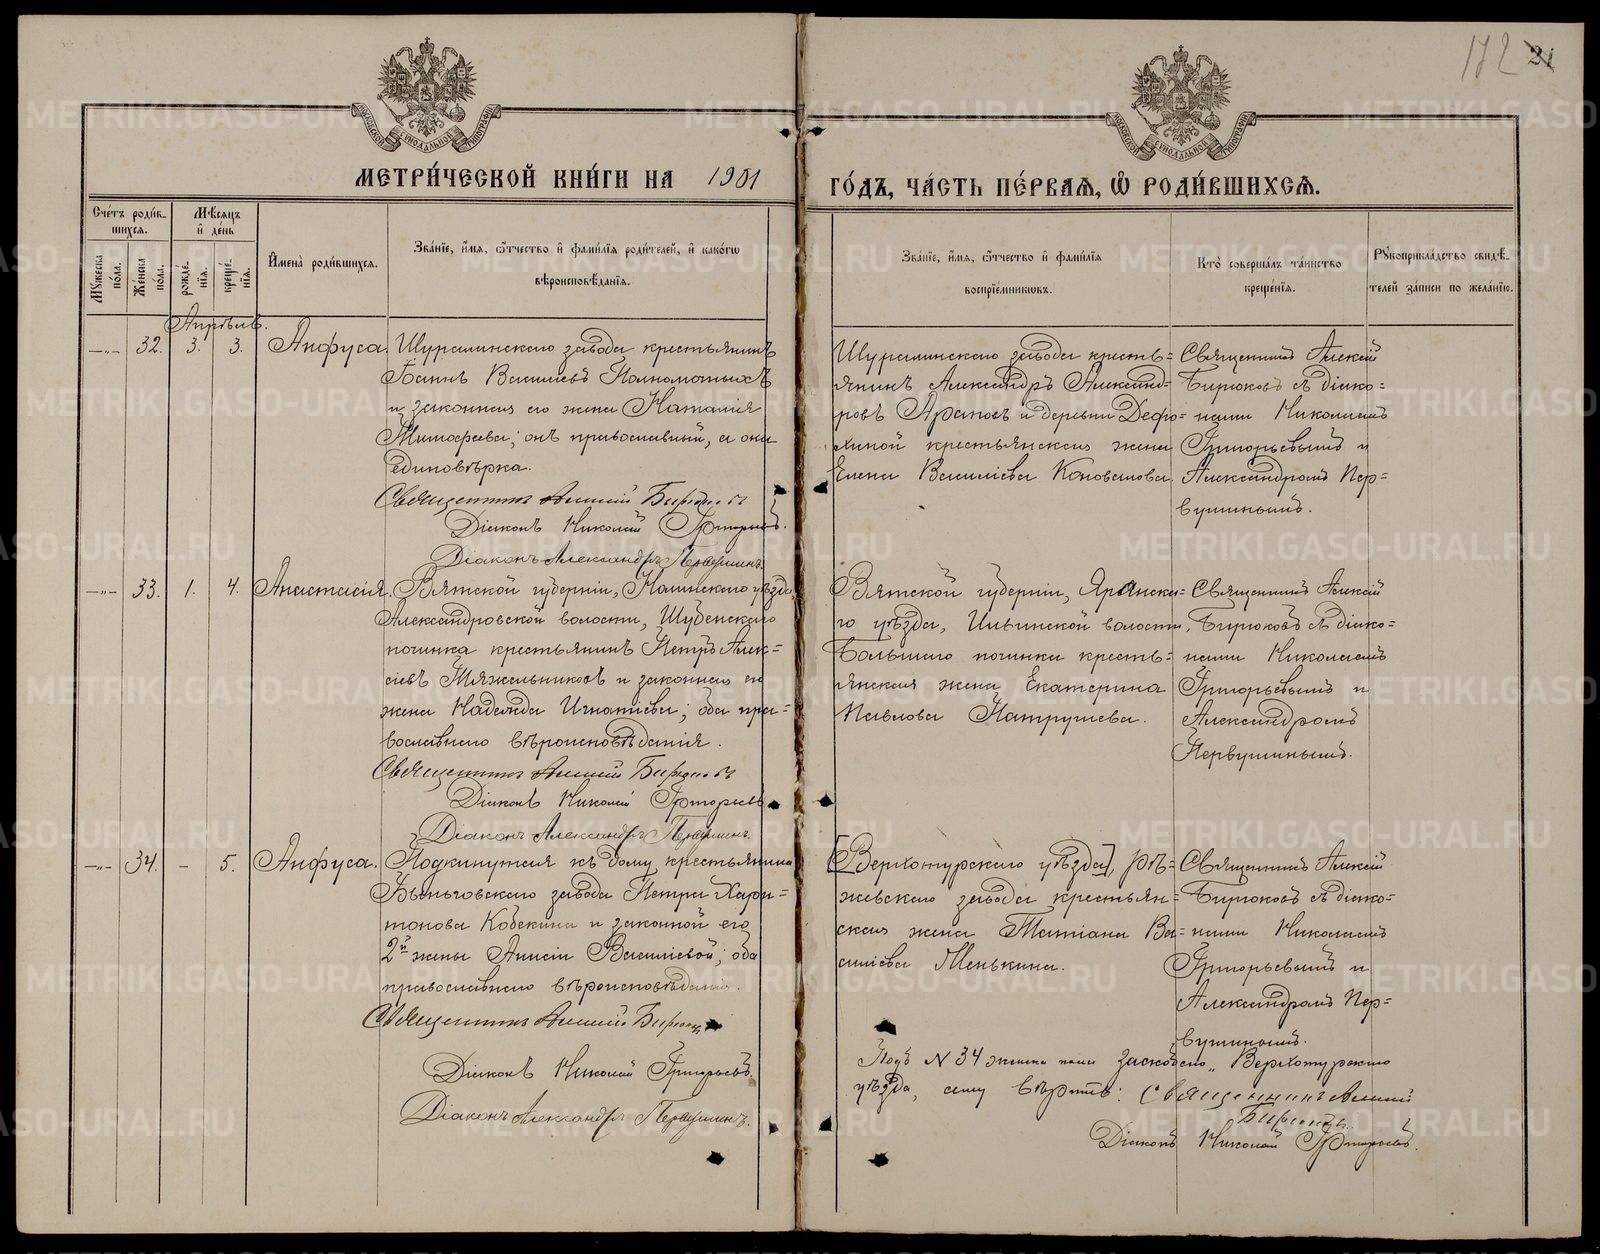 172 21
МОСКОВСКОЙ СѴНОДАЛЬНОЙ ТИПОГРАФІИ
МОСКОВСКОЙ СѴНОДАЛЬНОЙ ТИПОГРАФІИ
МЕТРИ́ЧЕСКОЙ КНИ́ГИ НА 1901
ГО́ДЪ, ЧА́СТЬ ПЕ́РВАѦ, Ѽ РОДИ́ВШИХСѦ.
Сче́тъ роди́в-
шихсѧ.
Мꙋ́жеска по́ла.
Же́нска по́ла.
Мѣ́сѧцъ
и҆ де́нь
рожде́-
нїѧ.
креще́-
нїѧ.
И҆мена̀ роди́вшихсѧ.
Зва́нїе, и҆́мѧ, ѻ҆́тчество и҆ фами́лїѧ роди́телей, и҆ како́гѡ
вѣроисповѣ́данїѧ.
Зва́нїе, и҆́мѧ, ѻ҆́тчество и҆ фами́лїѧ
воспрїе́мникѡвъ.
Кто̀ соверша́лъ та́инство
креще́нїѧ.
Рꙋкоприкла́дство свидѣ́-
телей за́писи по жела́нїю.
Апрѣль.
—„— 32. 3. 3. Анфуса.
Шуралинскаго завода крестьянинъ
Іоаннъ Васильевъ Полномочныхъ
и законная его жена Наталія
Тимофеева; онъ православный, а она
единовѣрка.
Священникъ Алексій Бирюковъ
Діаконъ Николай Григорьевъ.
Діаконъ Александръ Первушинъ.
Шуралинскаго завода кресть=
янинъ Александръ Александ=
ровъ Араповъ и деревни
крестьянская жена
Елена Васильева Коновалова.
Священникъ Алексій
Бирюковъ съ діако=
нами Николаемъ
Григорьевымъ и
Александромъ Пер=
вушинымъ.
—„— 33. 1. 4. Анастасія.
Вятской губерніи, Нолинскаго уѣзда,
Александровской волости, Шуденскаго
починка крестьянинъ Петръ Алек=
сіевъ Тяжельниковъ и законная его
жена Надежда Игнатіева; оба пра=
вославнаго вѣроисповѣданія.
Священникъ Алексій Бирюковъ
Діаконъ Николай Григорьевъ
Діаконъ Александръ Первушинъ.
Вятской губерніи, Яранска=
го уѣзда, Ильинской волости,
Большаго починка кресть=
янская жена Екатерина
Павлова Патрушева.
Священникъ Алексій
Бирюковъ съ діако=
нами Николаемъ
Григорьевымъ и
Александромъ
Первушинымъ.
—„— 34. — 5. Анфуса.
Подкинутая къ дому крестьянина
Быньговскаго завода Петра Хари=
тонова Кобекина и законной его
2й жены Анисіи Васильевой; оба
православнаго вѣроисповѣданія.
Священникъ Алексій Бирюковъ
Діаконъ Николай Григорьевъ.
Діаконъ Александръ Первушинъ.
[Верхотурскаго уѣзда], Рѣ=
жевскаго завода крестьян=
ская жена Татіана Ва=
сильева Менькина.
Священникъ Алексій
Бирюковъ съ діако=
нами Николаемъ
Григорьевымъ и
Александромъ Пер=
вушинымъ.
Подъ N 34 „Верхотурскаго
уѣзда, сему вѣрить: Священникъ Алексій
Бирюковъ.
Діаконъ Николай Григорьевъ.
METRIKI.GASO-URAL.RU